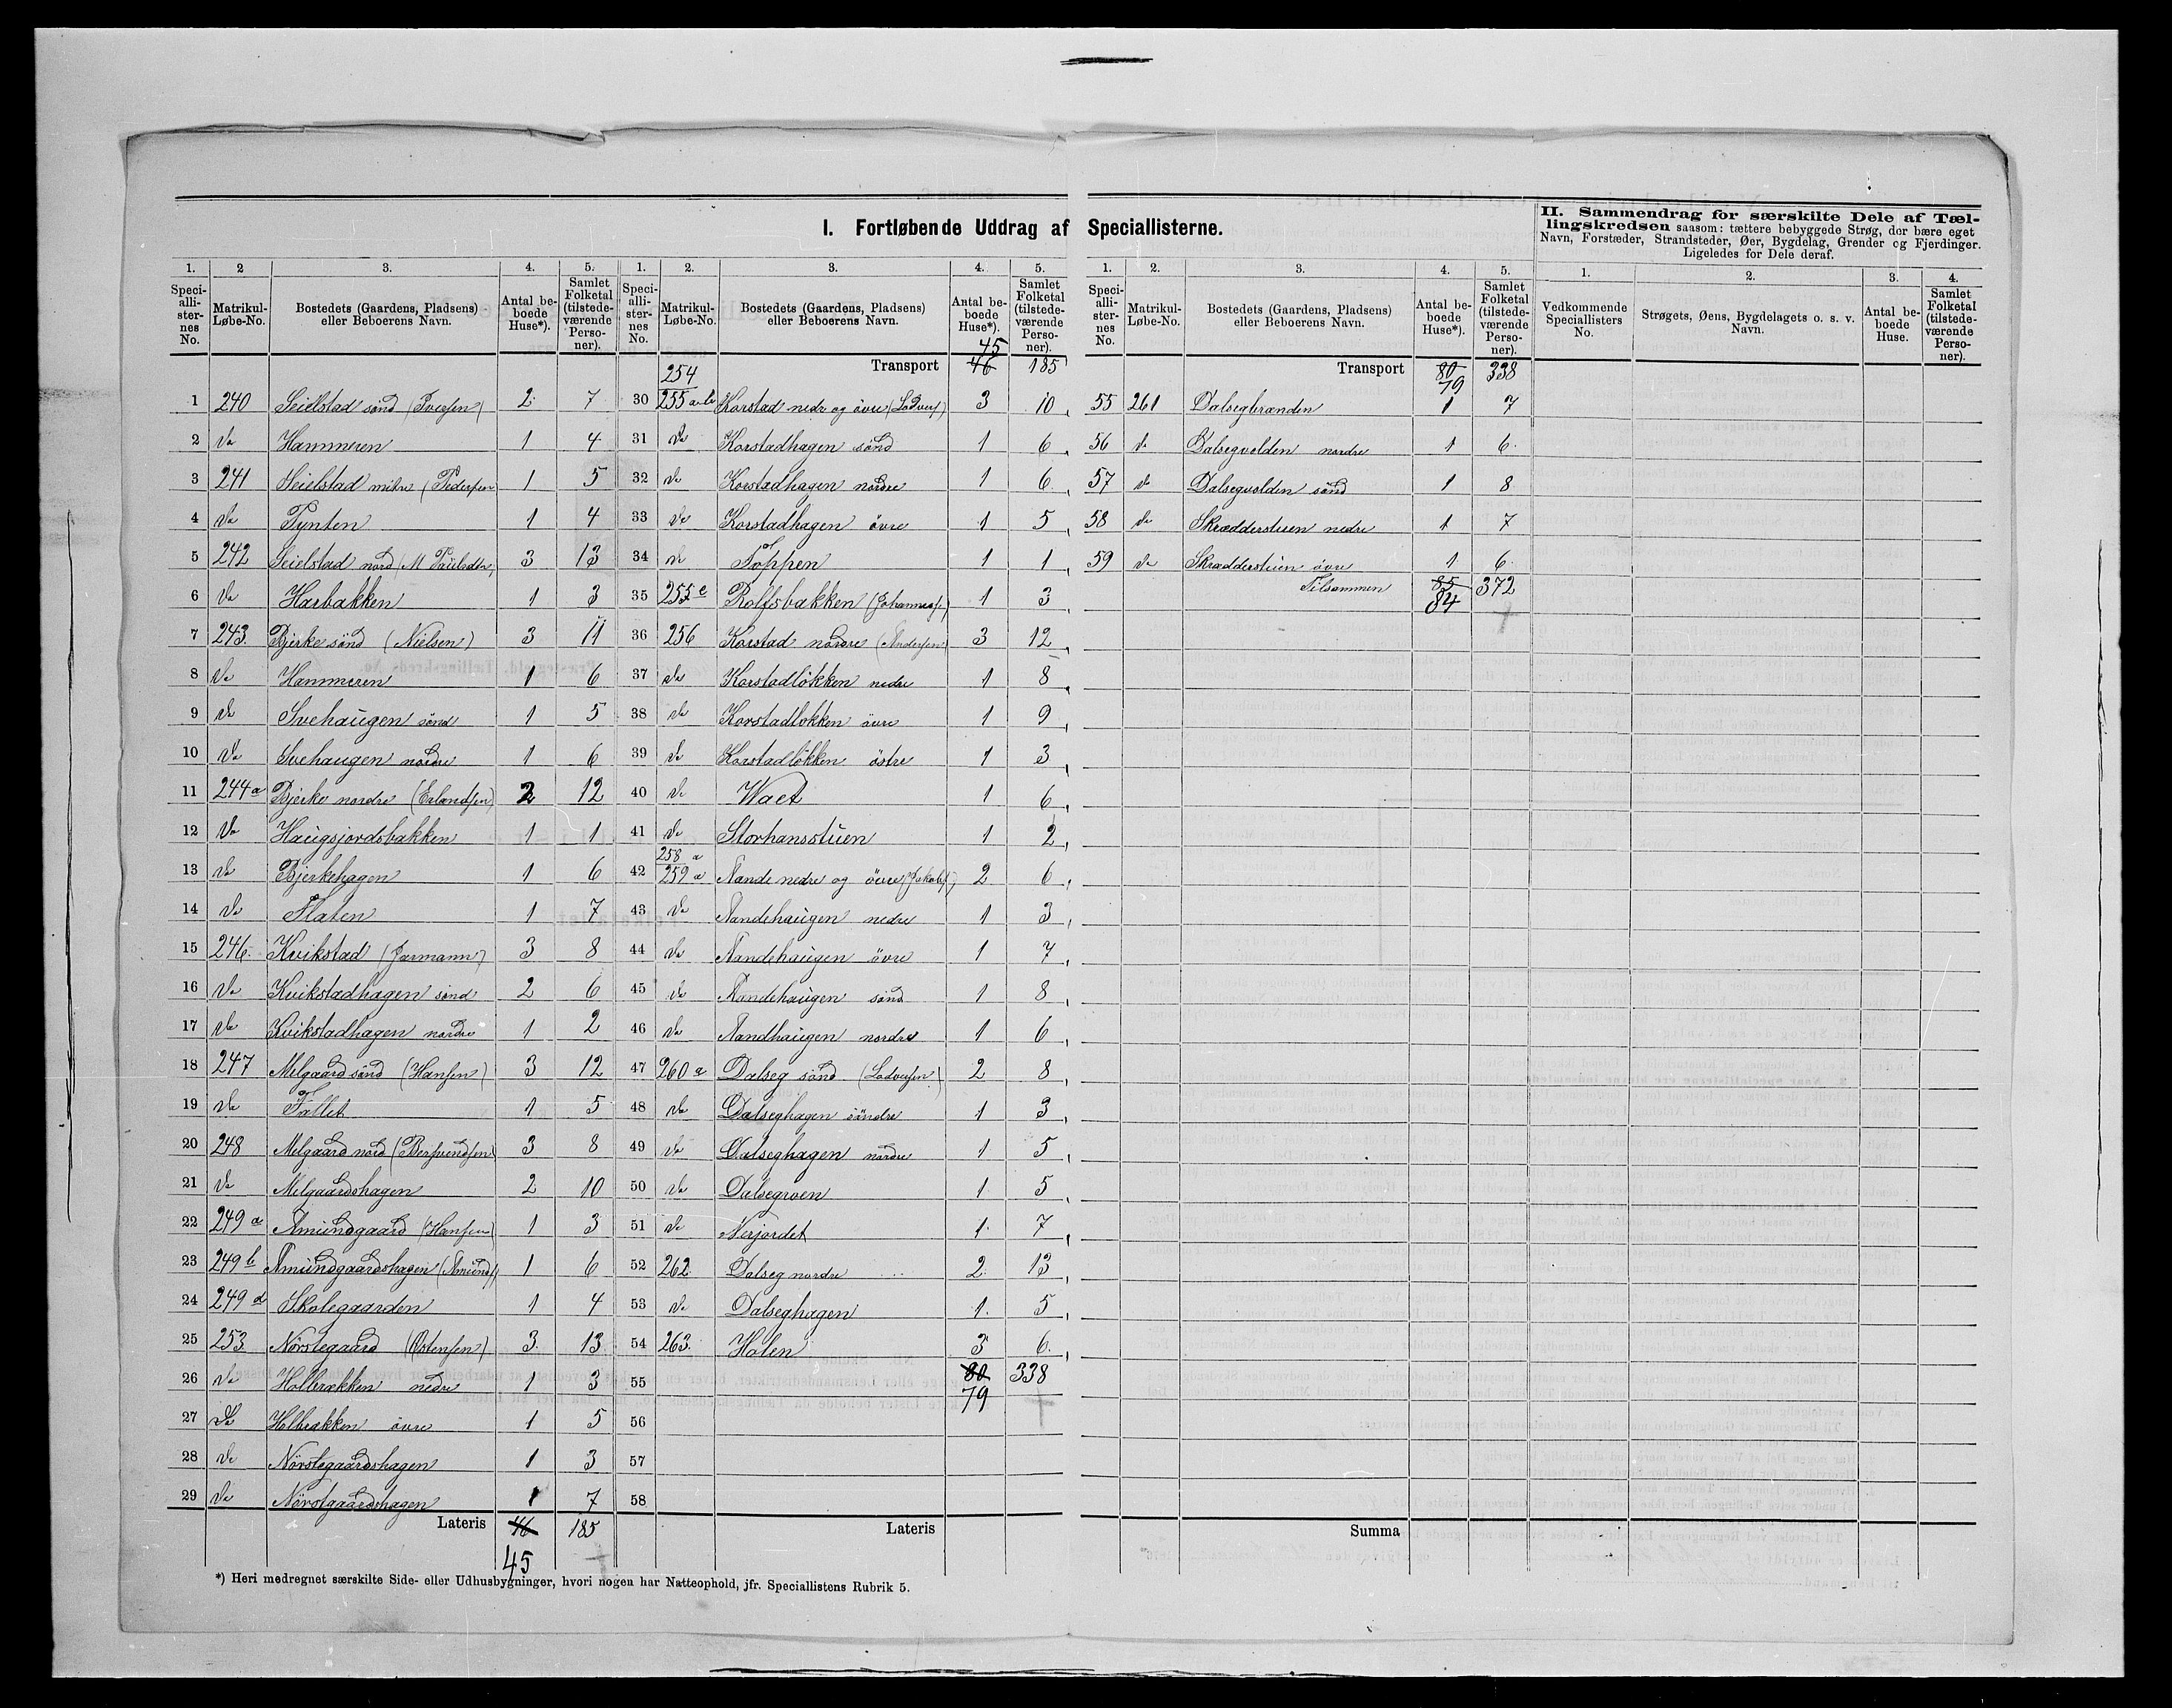 I. Fortløbende Uddrag af Speciallisterne.
1. 2 3. 4. 5.
Speciallisternes No. Matrikul-Løbe-No. Bostedets (Gaardens, Pladsens) eller Beboerens Navn. Antal beboede Huse*). Samlet Folketal (tilstedeværende Personer).
1 240 Seielstad sönd (Iversen) 2 7
2 Do Hammeren 1 4
3 241 Seielstad mitre (Pedersen 1 5
4 Do Tynten 1 4
5 242 Seielstad nord (M Paulsdtr, 3 13
6 Do Harbakken 1 3
7 243. Bjerke sönd (Nielsen) 3 11
8 Do Hammeren 1 6
9 Do Svehaugen sönd 1 5
10 Do Svehaugen nordre 1 6
11 244 a Bjerke nordre (Erlandsen) 2 12
12 Do Haugsjordsbakken 1 1
13 Do Bjerkehagen 1 6
14 Do Flaten 1 7
15 246. Kvikstad (Jarmann) 3 8
16 Do Kvikstadhagen sönd 2 6
17 Do Kvikstadhagen nordre 1 2
18 247 Melgaard sönd (Hansen) 3 12
19 Do Fallet 1 5
20 248 Melgaard nord (Bersvendsen 3 8
21 Do Melgaardshagen 2 10
22 249 a Amundgaard (Hansen) 1 3
23 249 b Amundgaardshagen (Amunds) 1 6
24 249 d Skolegaarden 1 4
25 253 Nörstegaard (Ostensen) 3. 13
26 Do Holbrækken nedre 1 3
27 Do Holbrækken övre 1 5
28 Do Nörstegaardshagen 1 3
29 Do Nörstgaardshagen 1 7
Lateris 46 185
45
1. 2. 3. 4. 5.
Speciallisternes No. Matrikul-Løbe-No. Bostedets (Gaardens, Pladsens) eller Beboerens Navn. Antal beboede Huse*). Samlet Folketal (tilstedeværende Personer).
45
Transport 46 185
254
30 255 a-b Korstad nedre og övre (Lodvers) 3 10
31 Do Korstadhagen sönd 1 6
32 Do Korstadhagen nordre 1 6
33 Do Korstadhagen övre 1 5
34 Do Toppen 1 1
35 255 c Rolfsbakken (Johannes) 1 3
36 256 Korstad nordre (Andersen 3 12
37 Do Korstadlökken nedre 1 8
38 Do Korstadlökken övre 1 9
39 Do Korstadlökken östre 1 3
40 Do Waet 1 6
41 Do Storhansstuen 1 2
258 a
42 259 a Aande nedre og övre (Jakobs) 2 6
43 Do Aandehaugen nedre 1 3
44 Do Aandehaugen övre 1 7
45 Do Aandehaugen sönd 1 8
46 Do Aandhaugen nordre 1 6
47 260 a Dalseg sönd (Lodversen) 2 8
48 Do Dalseghagen söndre 1 3
49 Do Dalseghagen nordre 1 5
50 Do Dalsegroen 1 5
51 Do Nerjordet 1. 7
52 262. Dalseg nordre 2. 13
53 Do Dalseghagen 1. 5
54 263. Holen 3 6
55 80 338
79
56
57
58
Lateris
1. 2. 3. 4. 5.
Speciallisternes No. Matrikul-Løbe-No. Bostedets (Gaardens, Pladsens) eller Beboerens Navn. Antal beboede Huse*). Samlet Folketal (tilstedeværende Personer).
Transport 80 338
79
55 261 Dalsegbrænden 1 7
56 Do Dalsegvolden nordre 1 6.
57 Do Dalsegvolden sönd 1 8
58 Do Skrædderstuen nedre 1 7
59 Do Skrædderstuen övre 1. 6.
Tilsammen 85 372
84
Summa
II. Sammendrag for særskilte Dele af Tællingskredsen saasom: tættere bebyggede Strøg, der bære eget
Navn, Forstæder, Strandsteder, Øer, Bygdelag, Grender og Fjerdinger.
Ligeledes for Dele deraf.
1. 2. 3. 4.
Vedkommende Speciallisters No. Strøgets, Øens, Bygdelagets o. s. v. Navn. Antal beboede Huse. Samlet Folketal (tilstedeværende Personer).
*) Heri medregnet særskilte Side- eller Udhusbygninger, hvori nogen har Natteophold, jfr. Speciallistens Rubrik 5.